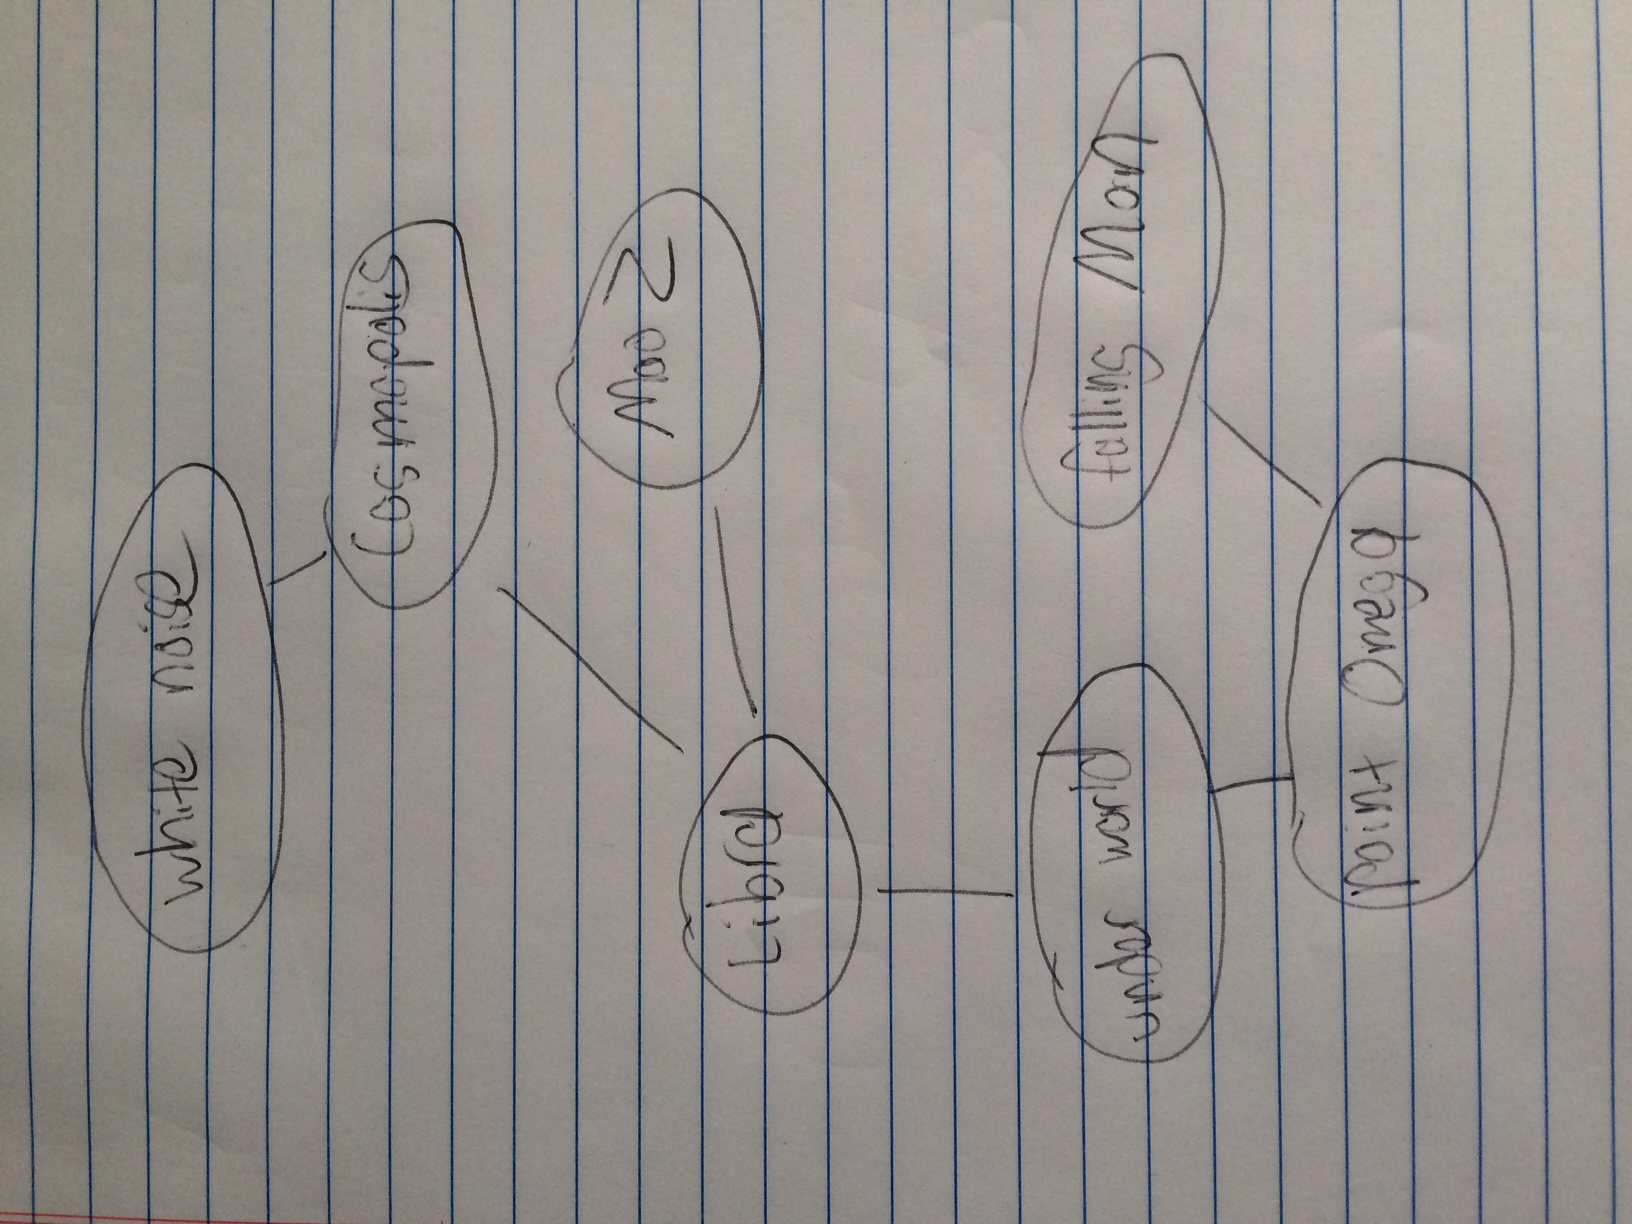 white noise
Cosmopolis
Moo Z
Libra
under world
falling Man
point Omega